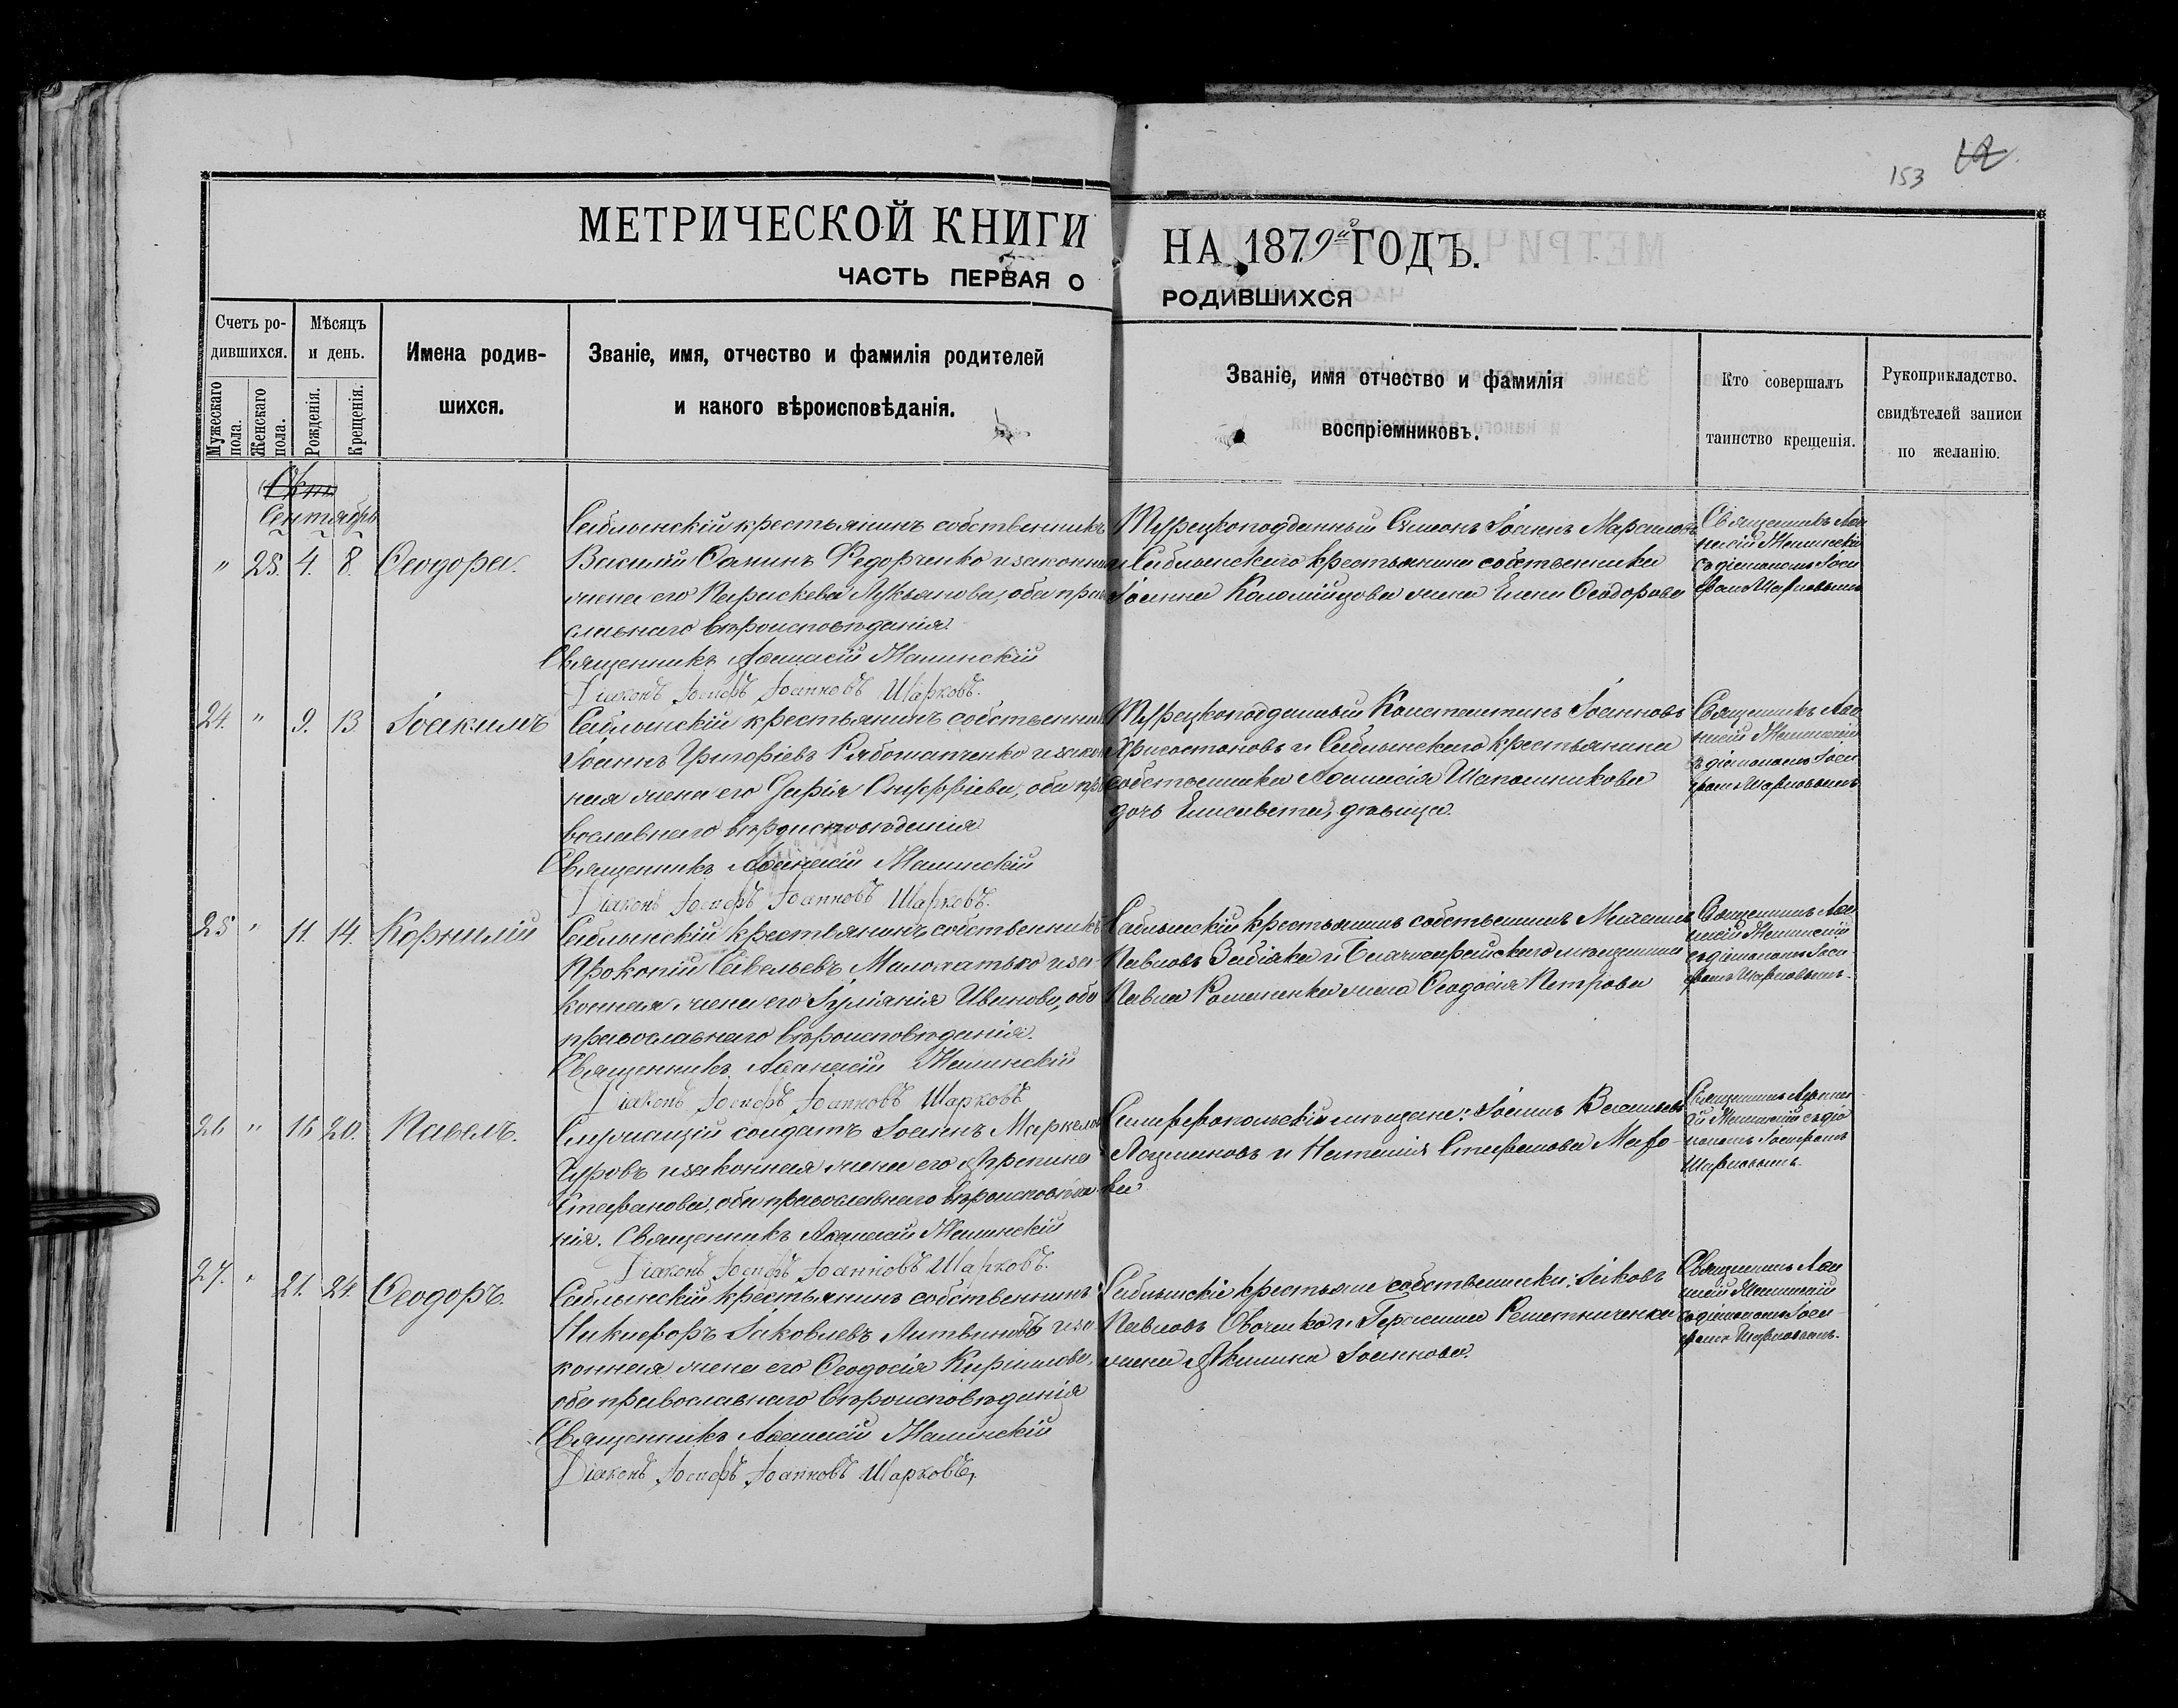 153
12
МЕТРИЧЕСКОЙ КНИГИ НА 1879й ГОДЪ.
ЧАСТЬ ПЕРВАЯ О РОДИВШИХСЯ
Счетъ ро-
дившихся.
Мужескаго пола.
Женскаго пола.
Мѣсяцъ
и день.
Рожденія.
Крещенія.
Имена родив-
шихся.
Званіе, имя, отчество и фамилія родителей
и какого вѣроисповѣданія.
Званіе, имя отчество и фамилія
воспріемниковъ.
Кто совершалъ
таинство крещенія.
Рукоприкладство.
свидѣтелей записи
по желанію.
Окт
Сентябрь
" 25. 4. 8. Ѳеодора.
Саблынскій крестьянинъ собственникъ
Василій Ѳедорченко и законная
жена его Параскева Лукьянова, оба пра
славнаго вѣроисповѣданія.
Священникъ Аѳанасій Жалинскій
Діаконъ Іосифъ Іоанновъ Шарковъ.
Турецкоподданный Симеонъ Іоаннъ
и Саблынскаго крестьянина собственника
Іоанна Коломійцова жена Елена Ѳеодорова
Священникъ Аѳа
насій Жалинскій
съ діакономъ Іоси
фомъ Шарковымъ
24. " 9. 13. Іоакимъ
Саблынскій крестьянинъ собственникъ
Іоаннъ Григорьевъ Рябошапченко и закон
ная жена его Онуфріева, оба пра
вославнаго вѣроисповѣданія
Священникъ Аѳанасій Жалинскій
Діаконъ Іосифъ Іоанновъ Шарковъ.
Турецкоподданный Константинъ Іоанновъ
и Саблынскаго крестьянина
собственника Аѳанасія Шапошникова
дочь Елисавета, дѣвица.
Священникъ Аѳа
насій Жалинскій
съ діакономъ Іоси
фомъ Шарковымъ
25 " 11. 14. Корнилій
Саблынскій крестьянинъ собственникъ
Прокопій Савельевъ и за-
конная жена его Іуліанія Иванова, оба
православнаго вѣроисповѣданія.
Священникъ Аѳанасій Жалинскій
Діаконъ Іосифъ Іоанновъ Шарковъ
Саблынскій крестьянинъ собственникъ Михаилъ
Павловъ Забіяка и мѣщанина
Павла Романенка жена Ѳеодосія Петрова
Священникъ Аѳа
насій Жалинскій
съ діакономъ Іоси-
фомъ Шарковымъ.
26 " 16 20. Павелъ.
Служащій солдатъ Іоаннъ Маркеловъ
и законная жена его Агрипина
Стефанова, оба православнаго вѣроисповѣда
нія. Священникъ Аѳанасій Жалинскій
Діаконъ Іосифъ Іоанновъ Шарковъ.
Симферопольскіе мѣщане: Іоаннъ Васильевъ
и Наталія Стефанова
Священникъ Аѳанас
ій Жалинскій съ діа
кономъ Іосифомъ
Шарковымъ.
27. " 21. 24. Ѳеодоръ.
Саблынскій крестьянинъ собственникъ
Никифоръ Іаковлевъ Литвиновъ и за
конная жена его Ѳеодосія Кириллова,
оба православнаго вѣроисповѣданія
Священникъ Аѳанасій Жалинскій
Діаконъ Іосифъ Іоанновъ Шарковъ.
Саблынскіе крестьяне собственники: Іаковъ
Павловъ и Герасима Решетниченка
жена Акилина Іоаннова.
Священникъ Аѳа
насій Жалинскій
съ діакономъ Іоси
фомъ Шарковымъ.